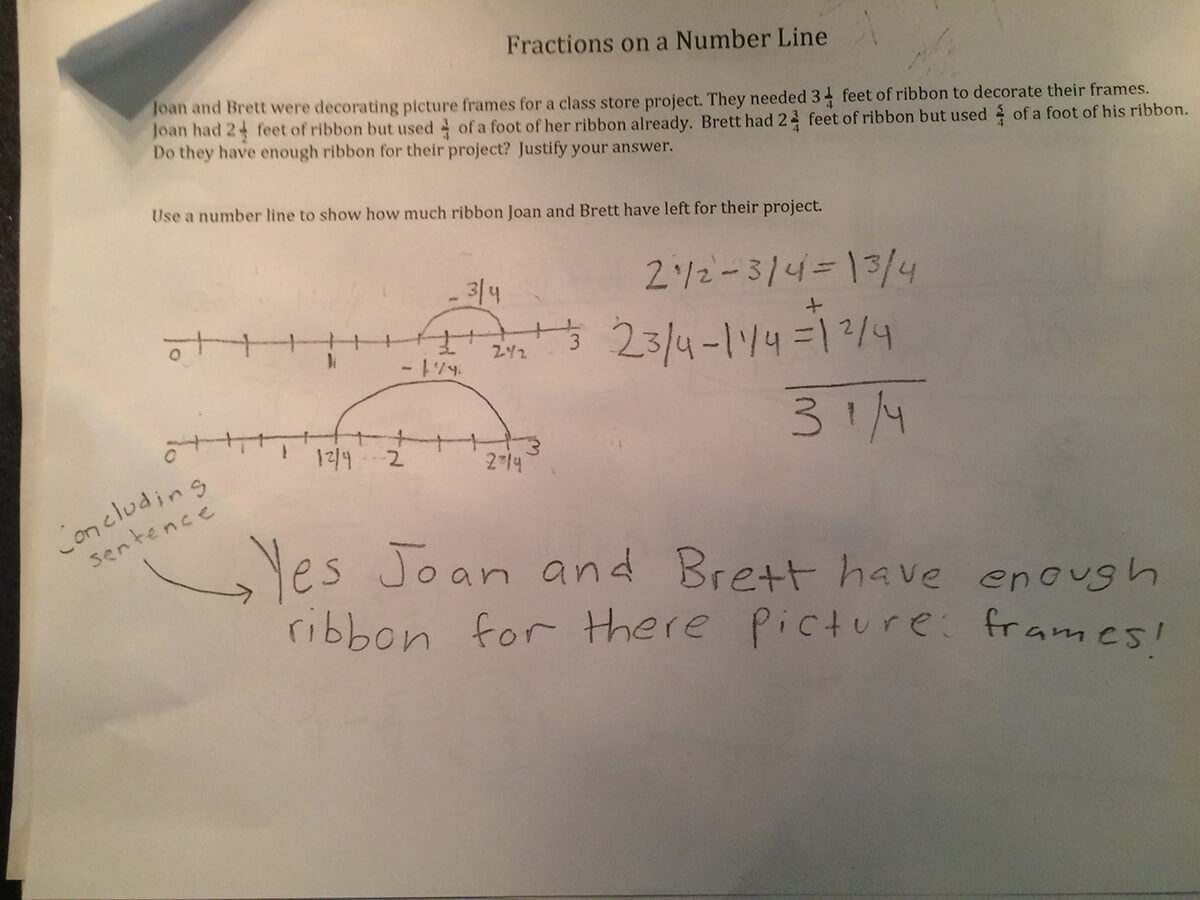 Fractions on a Number Line
Joan and Brett were decorating picture frames for a class store project. They needed 3 1/4 feet of ribbon to decorate their frames.
Joan had 2 1/2 feet of ribbon but used 3/4 of a foot of her ribbon already. Brett had 2 3/4 feet of ribbon but used 5/4 of a foot of his ribbon.
Do they have enough ribbon for their project? Justify your answer.
Use a number line to show how much ribbon Joan and Brett have left for their project.
2 1/2 - 3/4 = 1 3/4
+
2 3/4 - 1 1/4 = 1 2/4
3 1/4
- 3/4
0 1 2 2 1/2 3
- 1 1/4
0 1 1 2/4 2 2 3/4 3
concluding
sentence
Yes Joan and Brett have enough
ribbon for there picture frames!